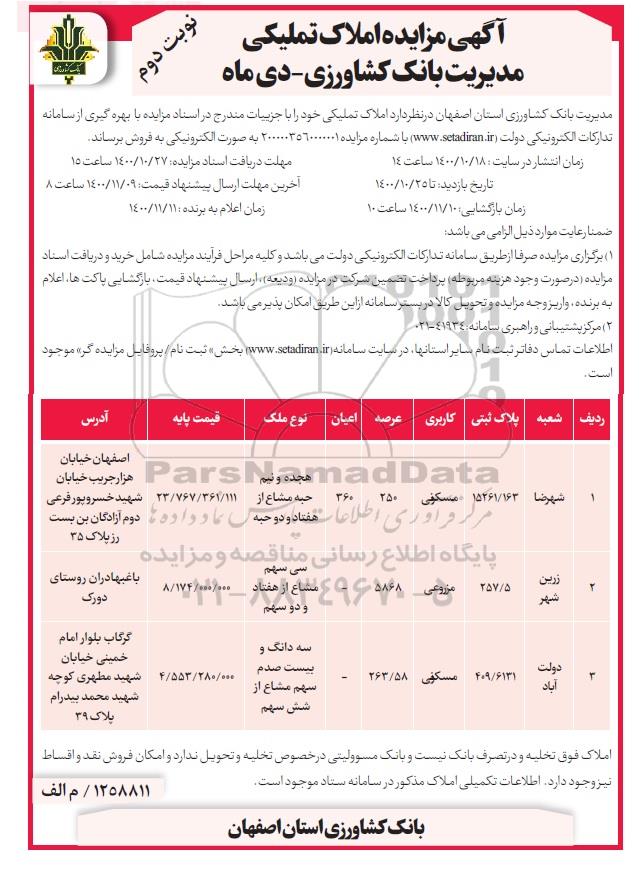 آگهی مزایده املاک تملیکی
مدیریت بانک کشاورزی-دی ماه
نوبت دوم
بانک کشاورزی
مدیریت بانک کشاورزی استان اصفهان درنظردارد املاک تملیکی خود را با جزییات مندرج در اسناد مزایده با بهره گیری از سامانه
تدارکات الکترونیکی دولت (www.setadiran.ir) با شماره مزایده ۲۰۰۰۰۰۳۵۶۰۰۰۰۰۰۱ به صورت الکترونیکی به فروش برساند.
زمان انتشار در سایت : ۱۴۰۰/۱۰/۱۸ ساعت ۱۴ مهلت دریافت اسناد مزایده: ۱۴۰۰/۱۰/۲۷ ساعت ۱۵
تاریخ بازدید: تا ۱۴۰۰/۱۰/۲۵ آخرین مهلت ارسال پیشنهاد قیمت: ۱۴۰۰/۱۱/۰۹ ساعت ۸
زمان بازگشایی: ۱۴۰۰/۱۱/۱۰ ساعت ۱۰ زمان اعلام به برنده : ۱۴۰۰/۱۱/۱۱
ضمنا رعایت موارد ذیل الزامی می باشد:
۱) برگزاری مزایده صرفا ازطریق سامانه تدارکات الکترونیکی دولت می باشد و کلیه مراحل فرآیند مزایده شامل خرید و دریافت اسناد
مزایده (درصورت وجود هزینه مربوطه) پرداخت تضمین شرکت در مزایده (ودیعه)، ارسال پیشنهاد قیمت، بازگشایی پاکت ها، اعلام
به برنده، واریز وجه مزایده و تحویل کالا در بستر سامانه ازاین طریق امکان پذیر می باشد.
۲) مرکز پشتیبانی و راهبری سامانه: ۴۱۹۳۴-۰۲۱
اطلاعات تماس دفاتر ثبت نام سایر استانها، در سایت سامانه (www.setadiran.ir) بخش» ثبت نام/ پروفایل مزایده گر» موجود
است.
ردیف شعبه پلاک ثبتی کاربری عرصه اعیان نوع ملک قیمت پایه آدرس
۱ شهرضا ۱۵۲۶۱/۱۶۳ مسکونی ۲۵۰ ۳۶۰ هجده و نیم حبه مشاع از هفتاد و دو حبه ۲۳/۷۶۷/۳۶۱/۱۱۱ اصفهان خیابان هزارجریب خیابان شهید خسروپور فرعی دوم آزادگان بن بست رز پلاک ۳۵
۲ زرین شهر ۲۵۷/۵ مزروعی ۵۸۶۸ - سی سهم مشاع از هفتاد و دو سهم ۸/۱۷۴/۰۰۰/۰۰۰ باغبهادران روستای دورک
۳ دولت آباد ۴۰۹/۶۱۳۱ مسکونی ۲۶۳/۵۸ - سه دانگ و بیست صدم سهم مشاع از شش سهم ۴/۵۵۳/۲۸۰/۰۰۰ گرگاب بلوار امام خمینی خیابان شهید مطهری کوچه شهید محمد بیدرام پلاک ۳۹
ParsNamadData
مرکز فرآوری اطلاعات پارس نماد داده ها
پایگاه اطلاع رسانی مناقصه و مزایده
۰۲۱-۸۸۳۴۹۶۷۰-۵
املاک فوق تخلیه و درتصرف بانک نیست و بانک مسوولیتی درخصوص تخلیه و تحویل ندارد و امکان فروش نقد و اقساط
نیز وجود دارد. اطلاعات تکمیلی املاک مذکور در سامانه ستاد موجود است.
۱۲۵۸۸۱۱ / م الف
بانک کشاورزی استان اصفهان